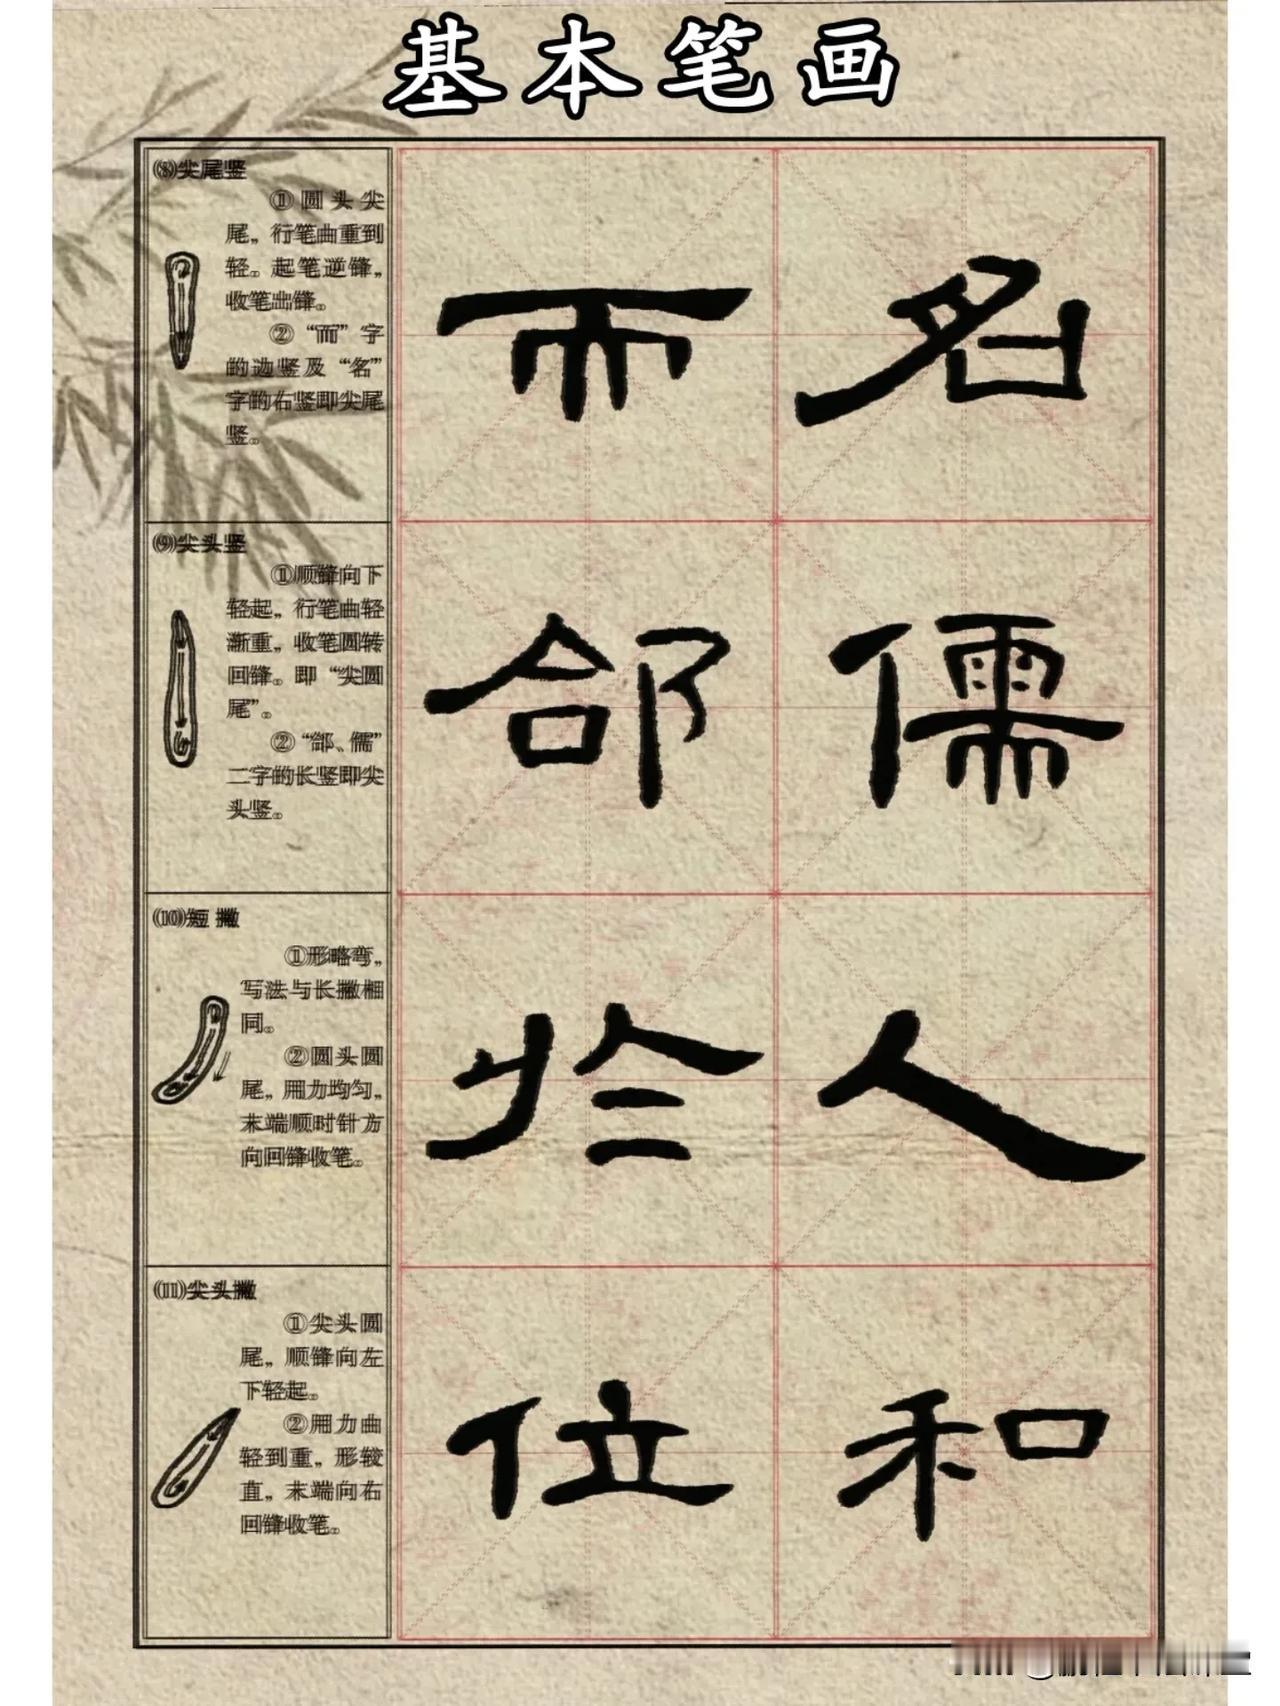 基本笔画
⑻尖尾竖
①圆头尖
尾，行笔由重到
轻。起笔逆锋，
收笔出锋。
②“而”字
的边竖及“名”
字的右竖即尖尾
竖。
而名
⑼尖头竖
①顺锋向下
轻起，行笔由轻
渐重，收笔圆转
回锋。即“尖圆
尾”。
②“郃、儒”
二字的长竖即尖
头竖。
郃儒
⑽短撇
①形略弯，
写法与长撇相
同。
②圆头圆
尾，用力均匀，
末端顺时针方
向回锋收笔。
於人
⑾尖头撇
①尖头圆
尾，顺锋向左
下轻起。
②用力由
轻到重，形较
直，末端向右
回锋收笔。
位和